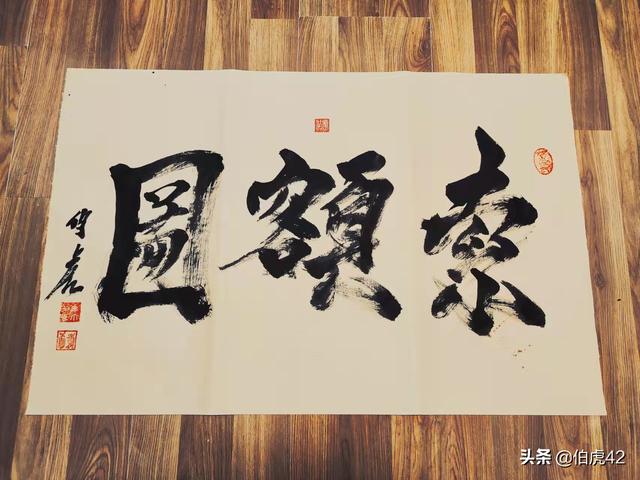 索額圖
伯虎
头条 @伯虎42